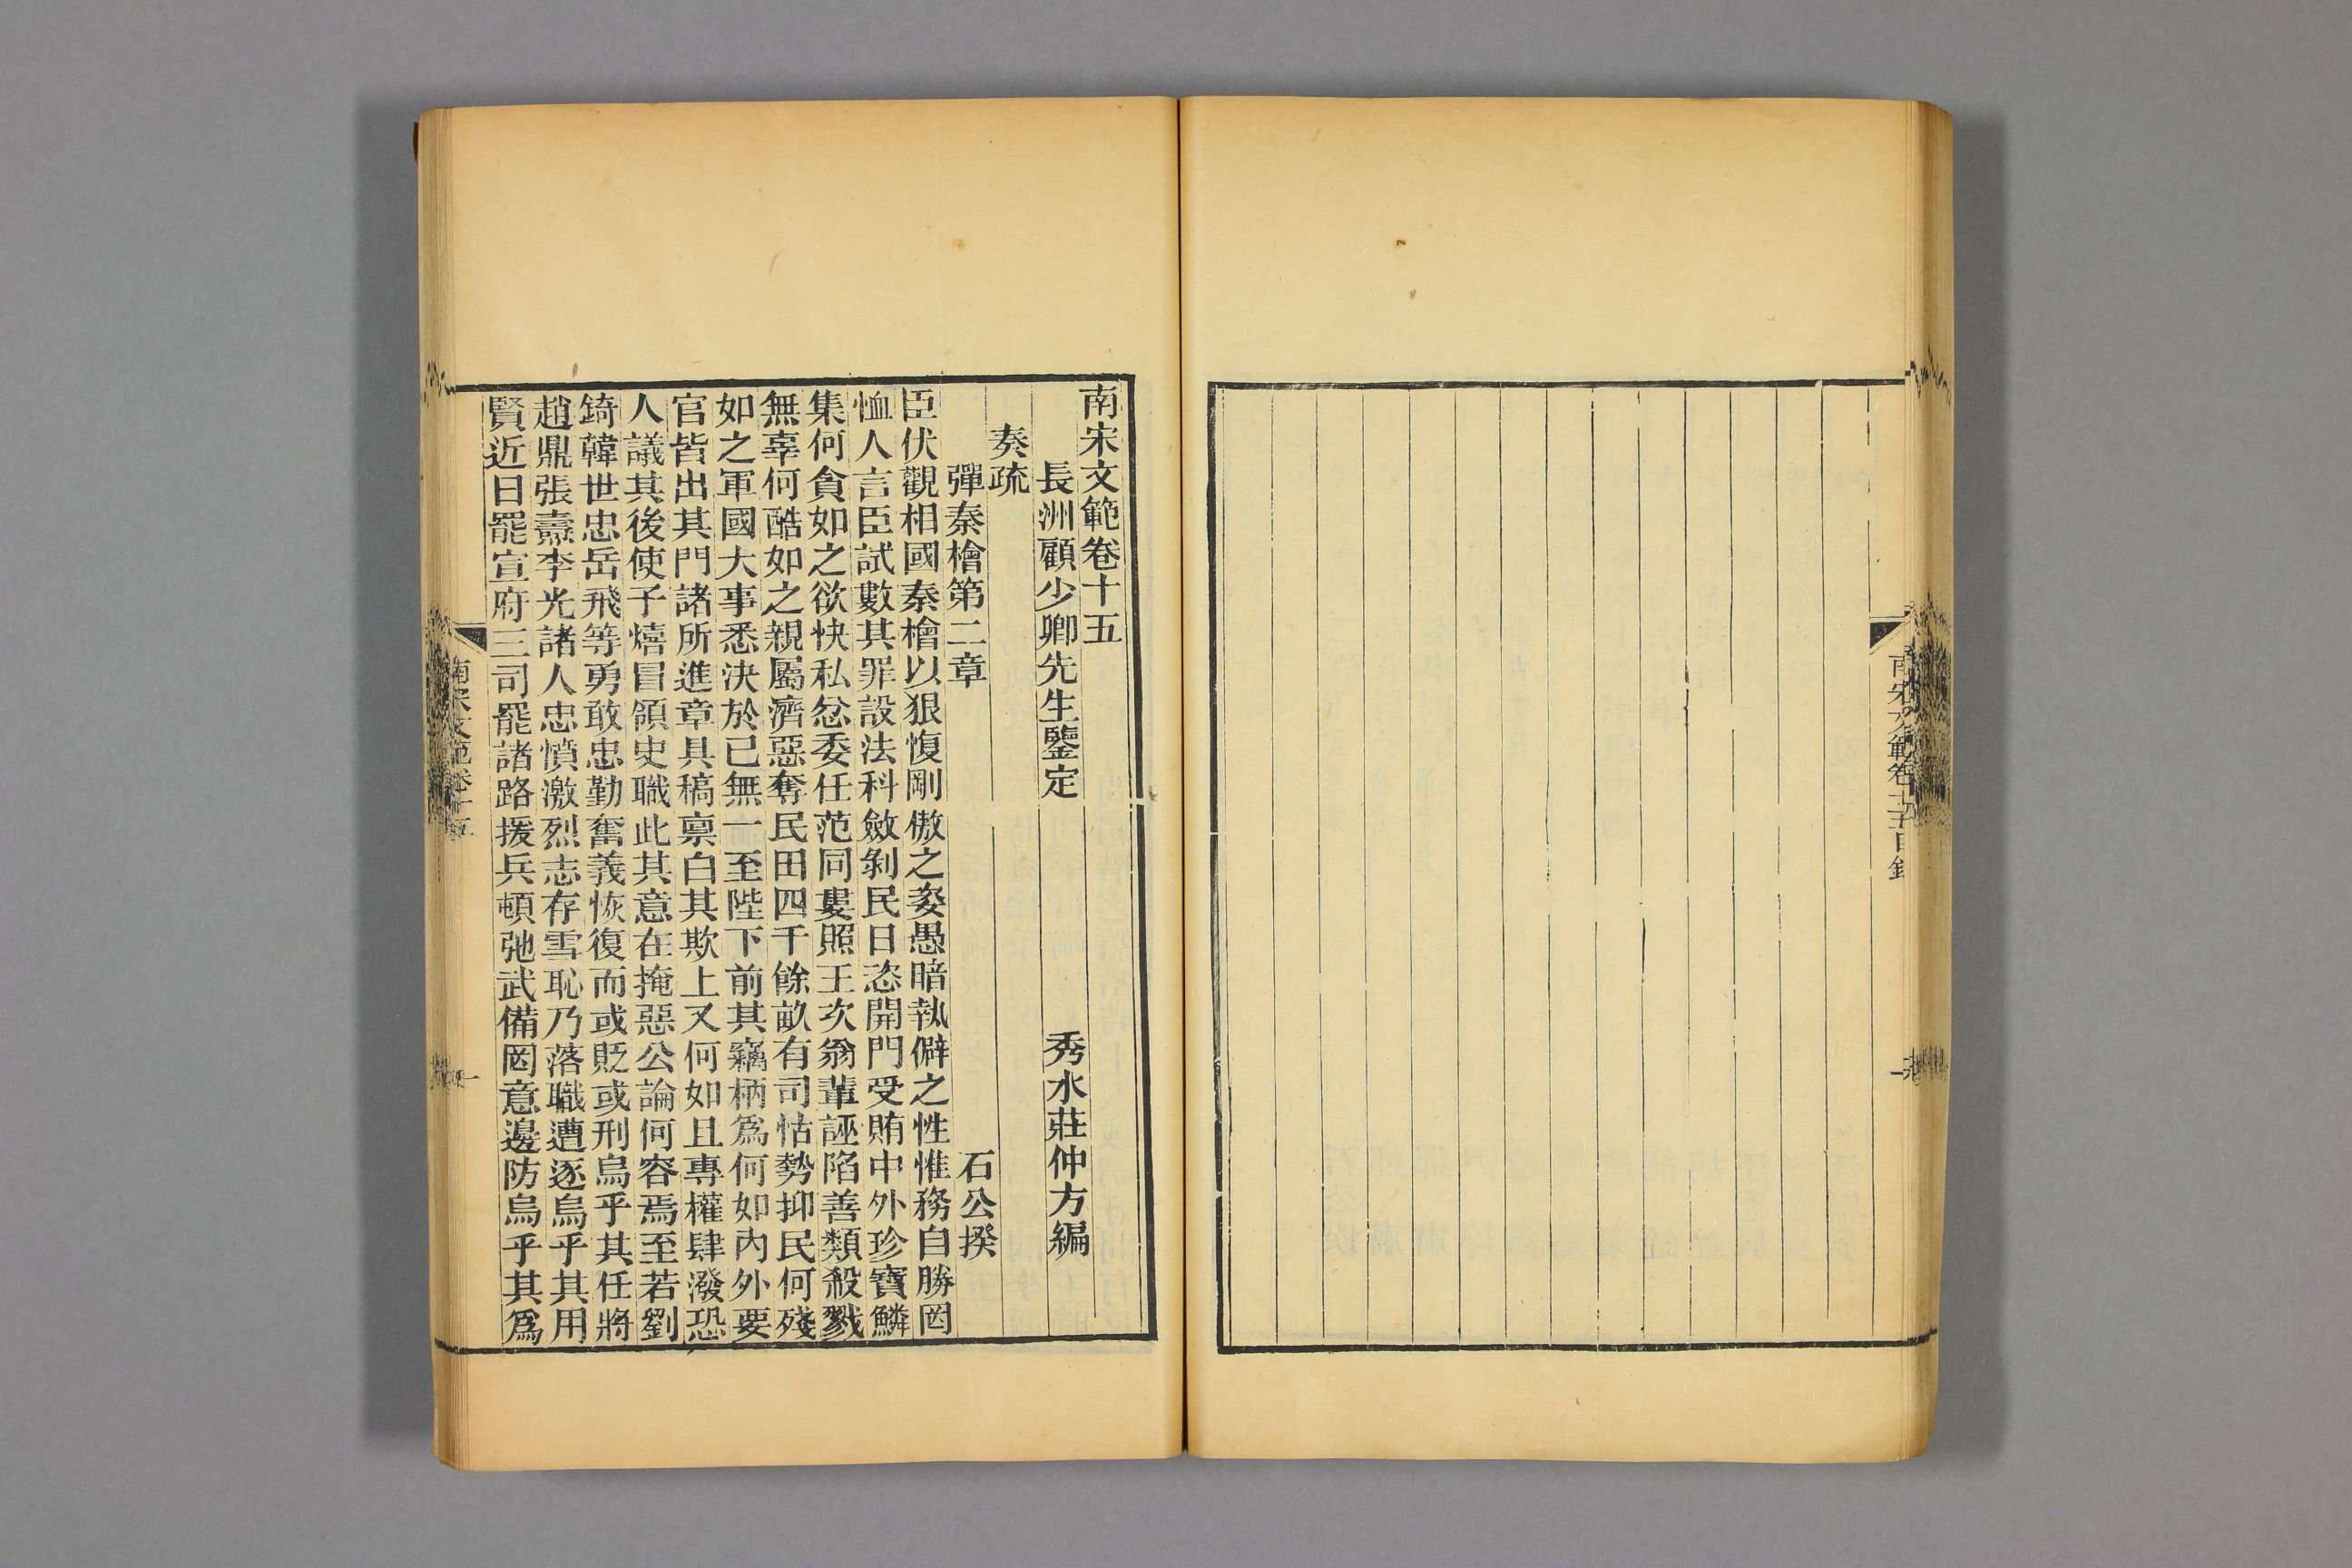 南宋文範卷十五
長洲顧少卿先生鑒定　秀水莊仲方編
奏疏
彈秦檜第二章　石公揆
臣伏觀相國秦檜以狠愎剛傲之姿愚暗執僻之性惟務自勝罔
恤人言臣試數其罪設法科斂剝民日恣開門受賄中外珍寶鱗
集何貪如之欲快私忿委任范同婁照王次翁輩誣陷善類殺戮
無辜何酷如之親屬濟惡奪民田四千餘畝有司怙勢抑民何殘
如之軍國大事悉決於已無一至陛下前其竊柄爲何如內外要
官皆出其門諸所進章具稿禀白其欺上又何如且專權肆潑恐
人議其後使子熺冒領史職此其意在掩惡公論何容焉至若劉
錡韓世忠岳飛等勇敢忠勤奮義恢復而或貶或刑烏乎其任將
趙鼎張燾李光諸人忠憤激烈志存雪恥乃落職遭逐烏乎其用
賢近日罷宣府三司罷諸路援兵頓弛武備罔意邊防烏乎其爲
南宋文範卷十五
一